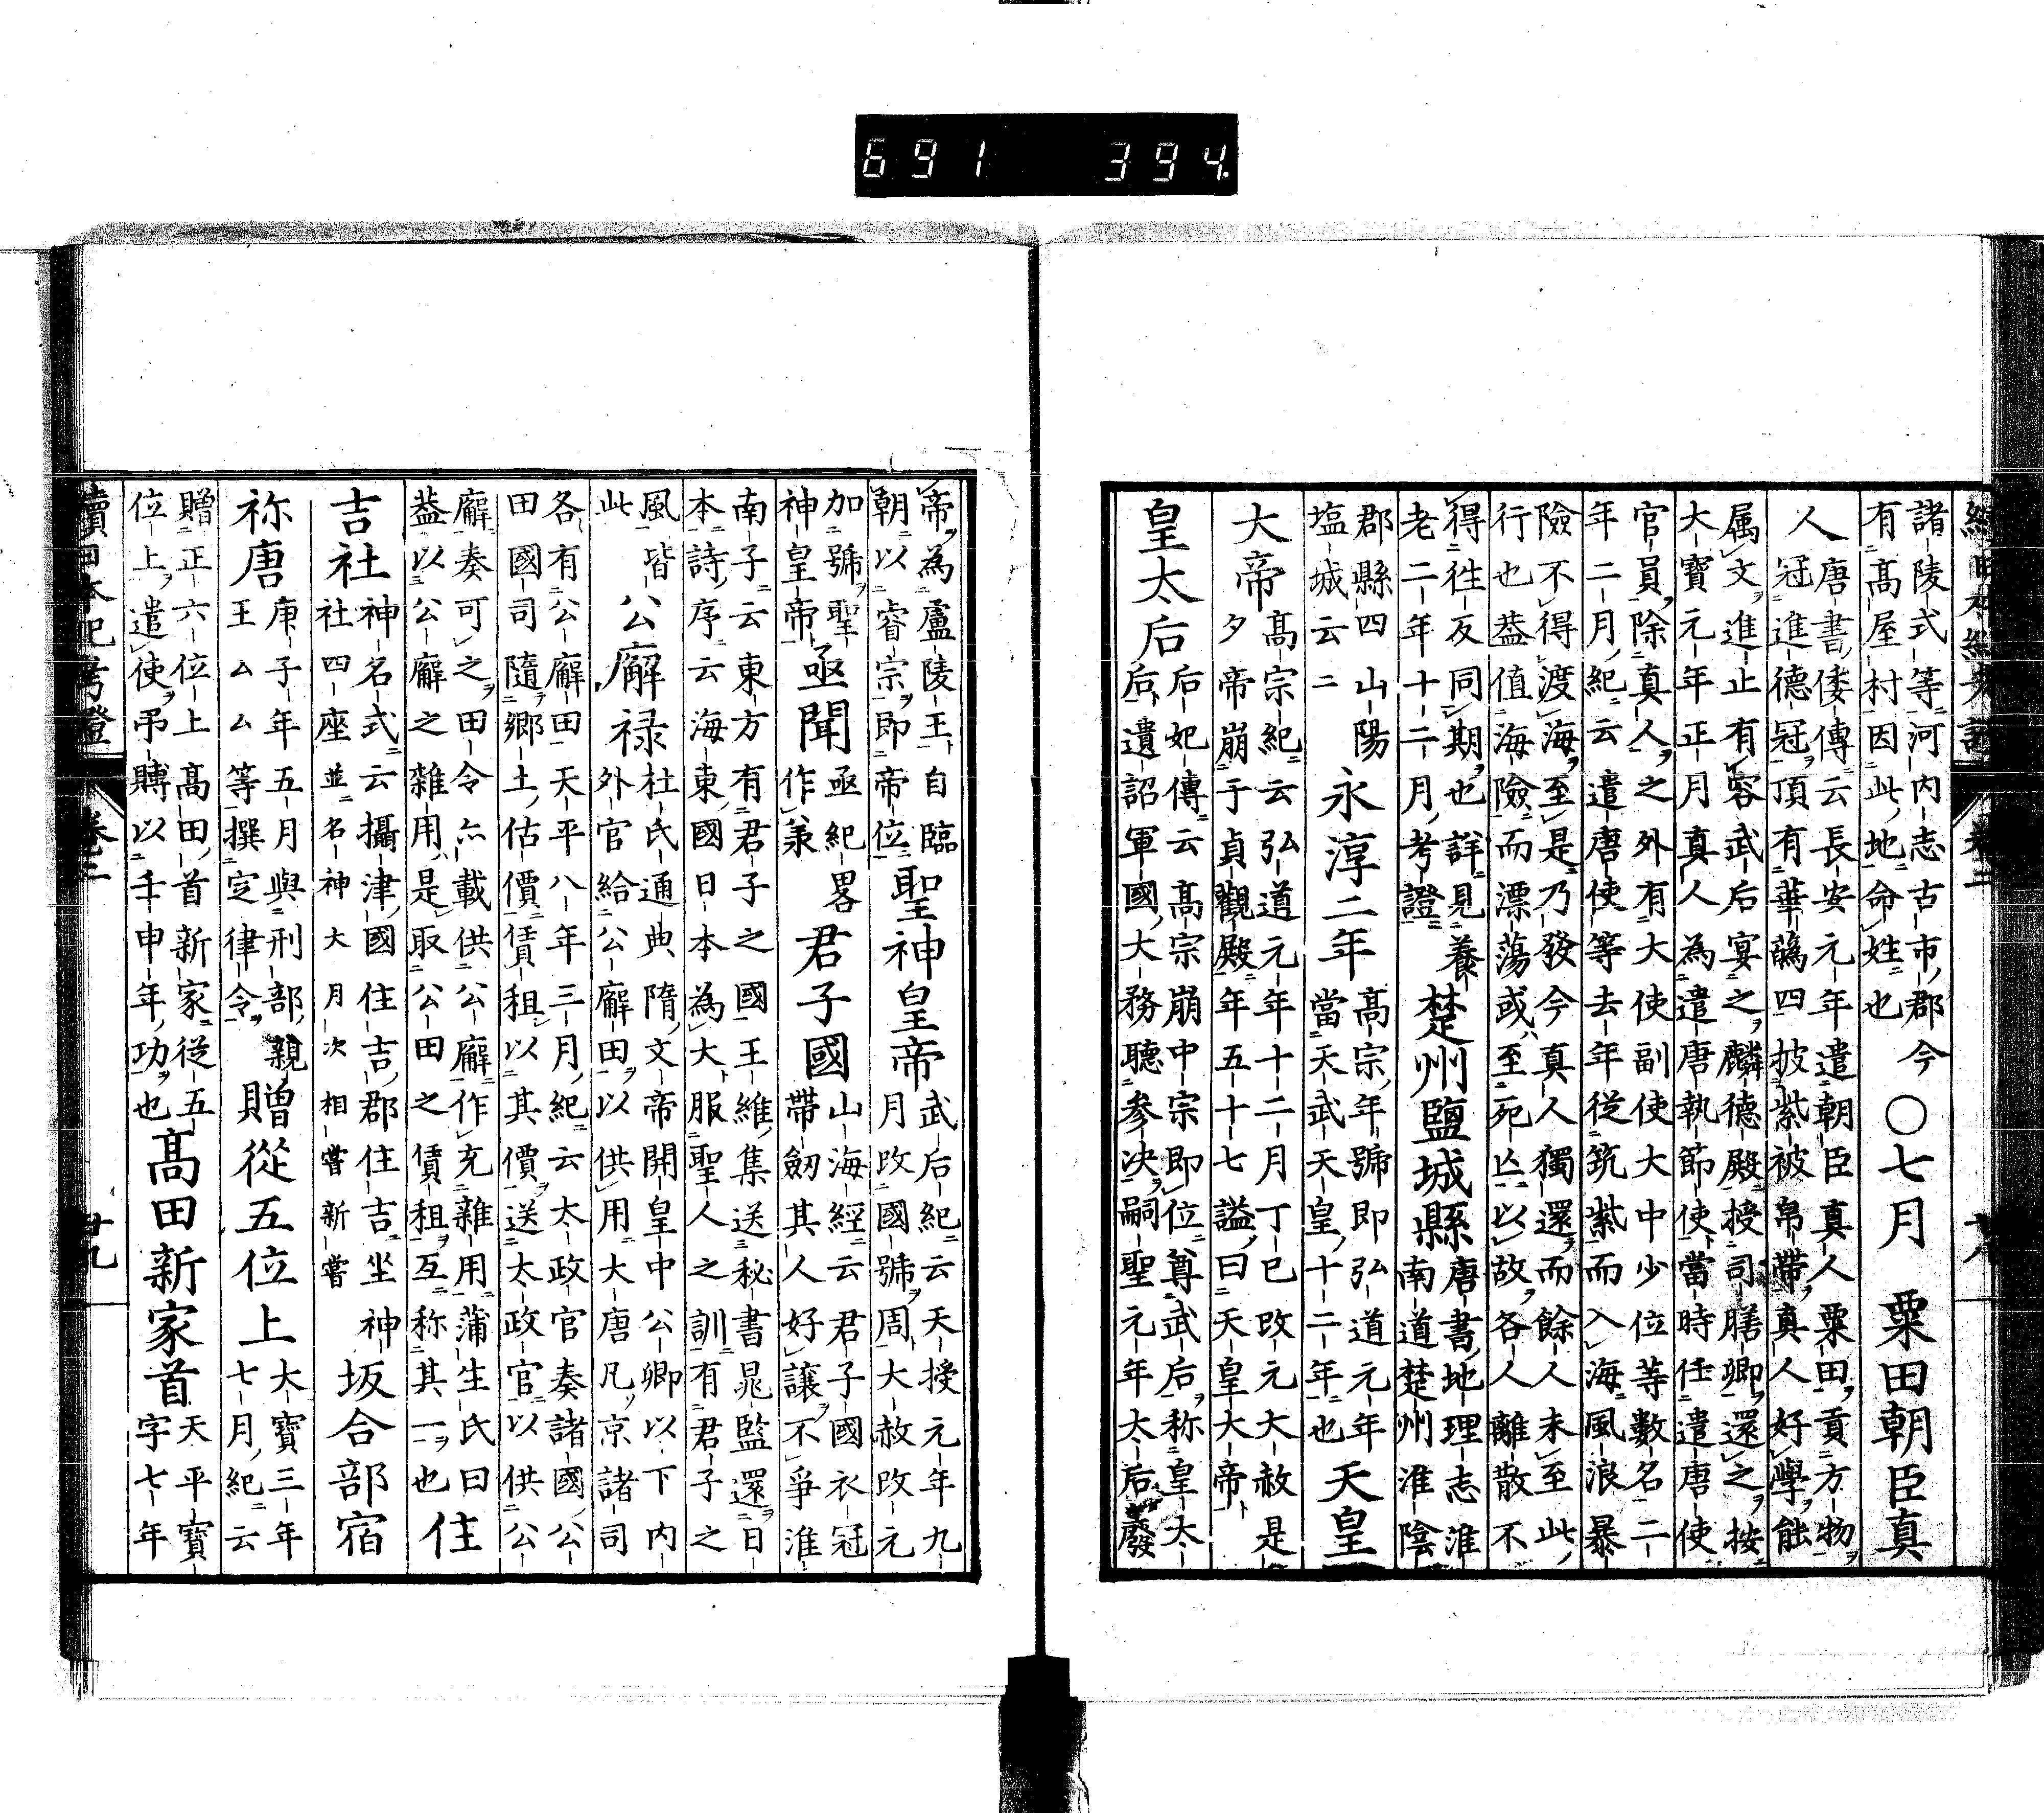 691 394.
諸陵式等河内志古市郡今
有髙屋村因此地命姓也
〇七月 粟田朝臣真
人
唐書倭傳云長安元年遣朝臣真人粟田貢方物
冠進德冠頂有華蘤四披紫被帛帶真人好學能
属文進止有容武后宴之麟德殿授司膳卿還之按
大寶元年正月真人為遣唐執節使當時任遣唐使
官員除真人之外有大使副使大中少位等數名二
年二月紀云遣唐使等去年従筑紫而入海風浪暴
險不得渡海至是乃發今真人獨還而餘人未至此
行也葢值海險而漂蕩或至死亾以故各人離散不
得徃反同期也詳見養
老二年十二月考證
楚州鹽城縣
唐書地理志淮
南道楚州淮陰
郡縣四山陽
塩城云〻
永淳二年
髙宗年號即弘道元年
當天武天皇十二年也
天皇
大帝
髙宗紀云弘道元年十二月丁巳改元大赦是
夕帝崩于貞觀殿年五十七謚曰天皇大帝
皇太后
后妃傳云髙宗崩中宗即位尊武后称皇太
后遺詔軍國大務聽参决嗣聖元年太后廢
帝為盧陵王自臨
朝以睿宗即帝位
聖神皇帝
武后紀云天授元年九
月改國號周大赦改元
加號聖
神皇帝
亟聞
亟紀畧
作兼
君子國
山海經云君子國衣冠
帶劒其人好讓不爭淮
南子云東方有君子之國王維集送秘書晁監還日
本詩序云海東國日本為大服聖人之訓有君子之
風皆
此
公廨禄
杜氏通典隋文帝開皇中公卿以下内
外官給公廨田以供用大唐凡京諸司
各有公廨田天平八年三月紀云太政官奏諸國公
田國司隨鄉土估價賃租以其價送太政官以供公
廨奏可之田令亦載供公廨作充雜用蒲生氏曰
葢以公廨之雜用是取公田之賃租互称其一也
住
吉社
神名式云攝津國住吉郡住吉坐神
社四座並名神大月次相嘗新嘗
坂合部宿
祢唐
庚子年五月與刑部親
王厶厶等撰定律令
贈從五位上
大寶三年
七月紀云
贈正六位上髙田首新家從五
位上遣使吊賻以壬申年功也
髙田新家首
天平寶
字七年
續日本紀考證 卷二 廿九